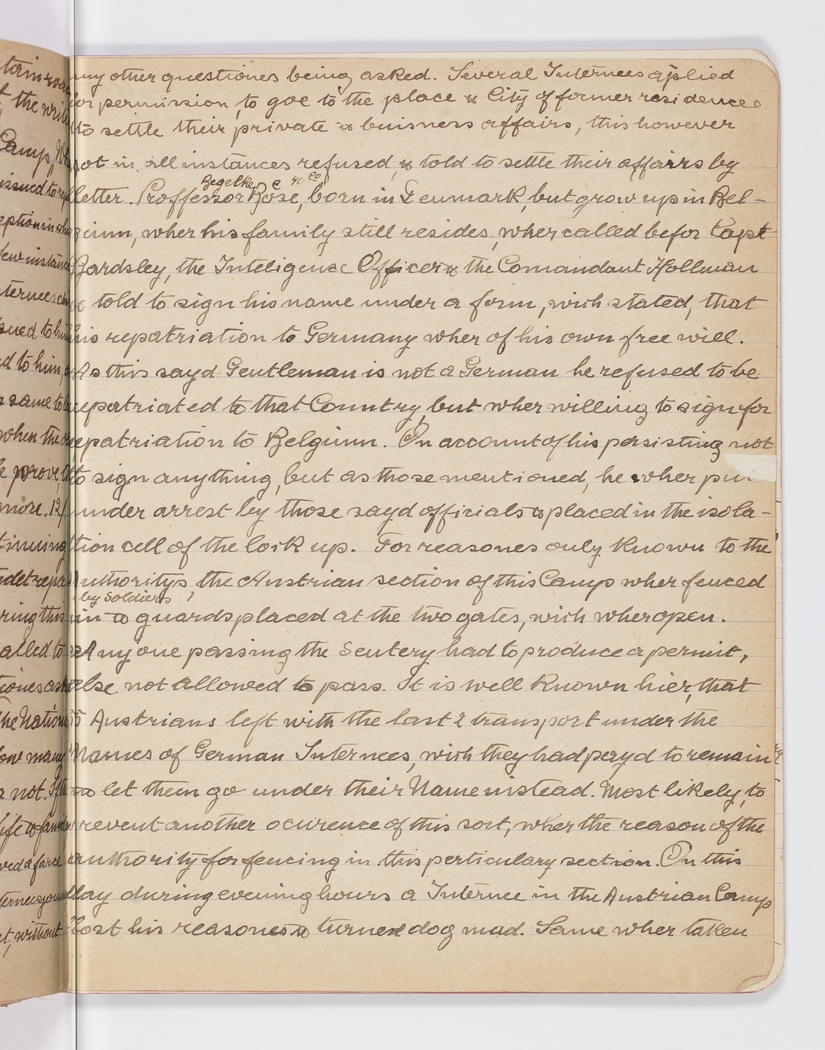 any other questiones being asked. Several Internees aplied
for permission, to goe to the place & City of former residences
to settle their private & buisness affairs, this however
not in all instances refused, & told to settle their affairs by
letter. Proffessor Bose, born in Denmark, but grow up in Bel-
gium, wher his family still resides, wher called befor Capt
Bardsley, the Inteligenac Officer & the Comandant Hollman
& told to sign his name under a form, wich stated, that
his repatriation to Germany wher of his own free will.
As this sayd Gentleman is not a German he refused to be
repatriated to that Country, but wher willing to sign for
repatriation to Belgium. On account of his persisting not
to sign anything, but as those mentioned, he wher put
under arrest by those sayd officials & placed in the isola-
tion cell of the lock up. For reasones only known to the
Authoritys the Austrian section of this Camp wher fenced
by Soldiers
in & guards placed at the two gates, wich wher open.
Any one passing the Sentery had to produce a permit,
else not allowed to pass. It is well known hier, that
Austrians left with the last 2 transport under the
Names of German Internees, wich they had payd to remain
& to let them go under their Name instead. Most likely, to
prevent another ocurence of this sort, wher the reason of the
authority for fencing in this perticulary section. On this
day during evening hours a Internee in the Austrian Camp
lost his reasones & turned dog mad. Same wher taken